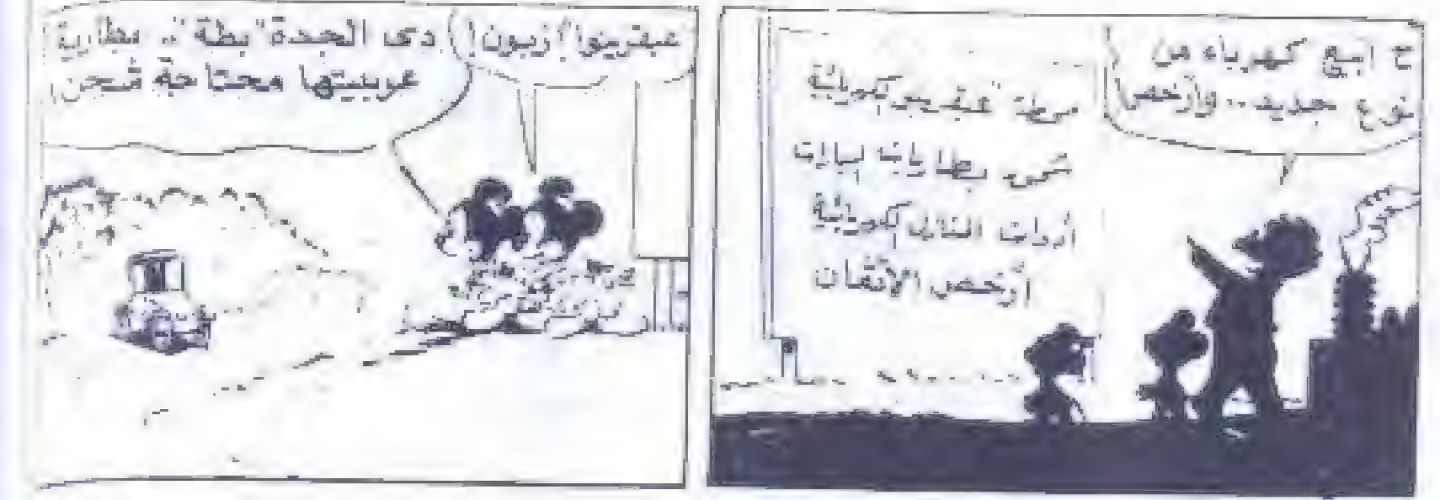 ح ابيع كهرباء من
نوع جديد.. وأرخص!
محطة عبقرينو الكهربائية
شحن بطاريات سيارات
أدوات المنازل الكهربائية
أرخص الأثمان
عبقرينوا! زبون!
دى الجدة "بطة".. بطارية
عربيتها محتاجة شحن!